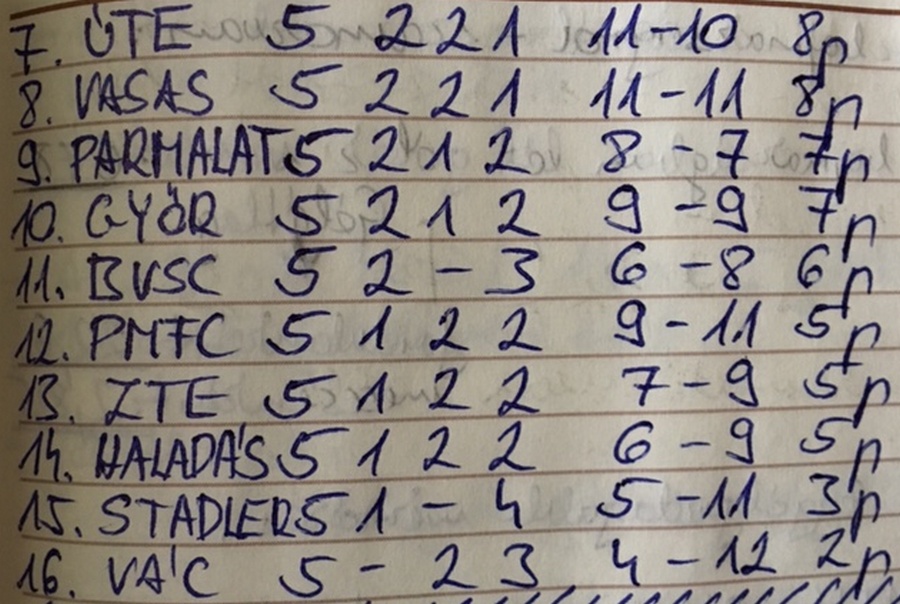 7. ÚTE 5 2 2 1 11-10 8p
8. VASAS 5 2 2 1 11-11 8p
9. PARMALAT 5 2 1 2 8-7 7p
10. GYŐR 5 2 1 2 9-9 7p
11. BVSC 5 2 - 3 6-8 6p
12. PMFC 5 1 2 2 9-11 5p
13. ZTE 5 1 2 2 7-9 5p
14. HALADÁS 5 1 2 2 6-9 5p
15. STADLER 5 1 - 4 5-11 3p
16. VÁC 5 - 2 3 4-12 2p